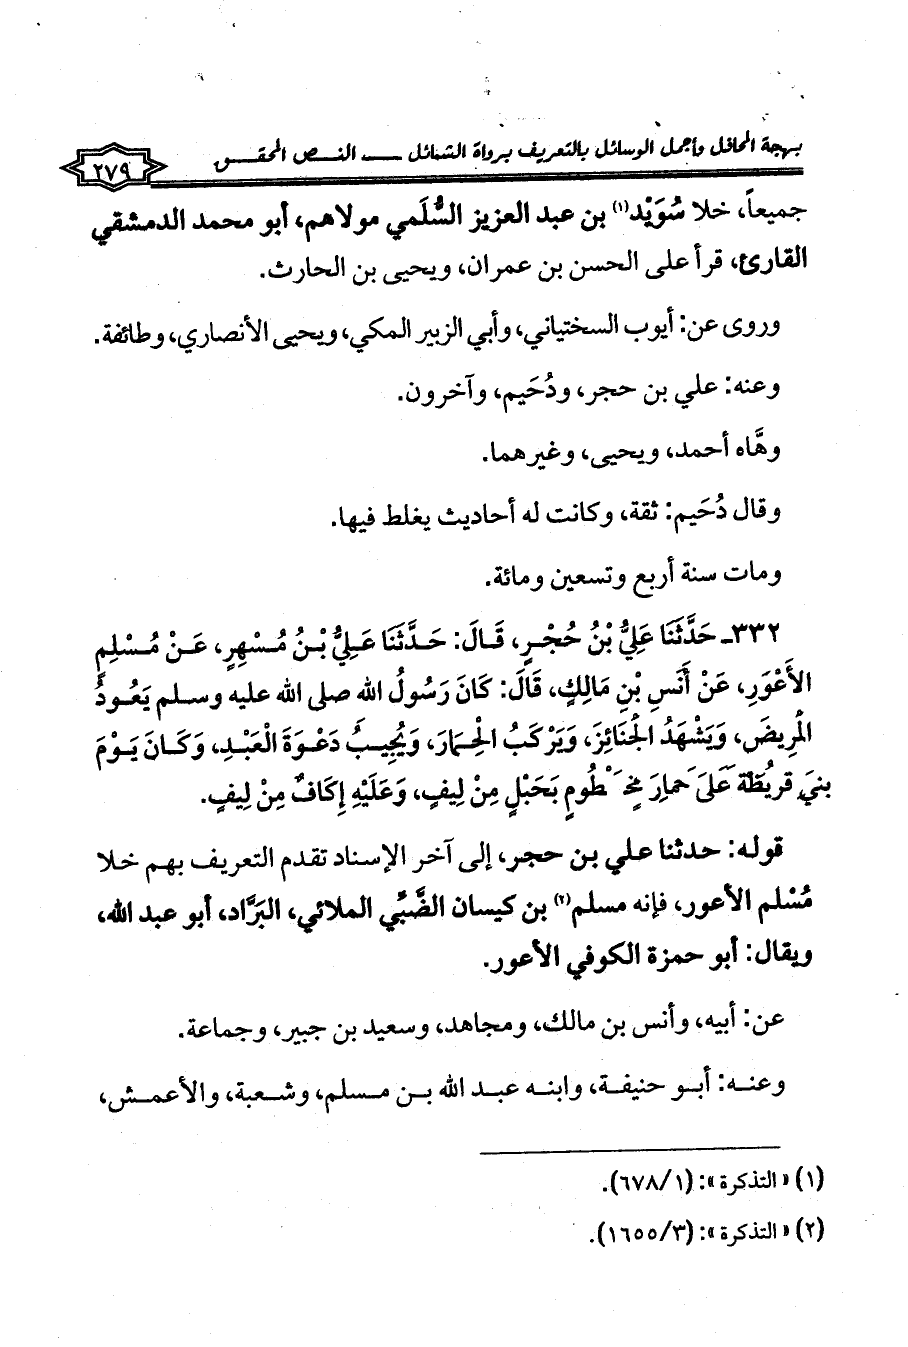 بهجة المحافل وأجمل الوسائل بالتعريف برواة الشمائل ــــ النــص المحقــق
٢٧٩
جميعاً، خلا سُوَيْد(١) بن عبد العزيز السُّلَمي مولاهم، أبو محمد الدمشقي
القارئ، قرأ على الحسن بن عمران، ويحيى بن الحارث.
وروى عن: أيوب السختياني، وأبي الزبير المكي، ويحيى الأنصاري، وطائفة.
وعنه: علي بن حجر، ودُحَيم، وآخرون.
وهَّاه أحمد، ويحيى، وغيرهما.
وقال دُحَيم: ثقة، وكانت له أحاديث يغلط فيها.
ومات سنة أربع وتسعين ومائة.
٣٣٢ـ حَدَّثَنَا عَلِيُّ بْنُ حُجْرٍ، قَـالَ: حَـدَّثَنَا عَـلِيُّ بْـنُ مُـسْهِرٍ، عَـنْ مُـسْلِمٍ
الأَعْوَرِ، عَنْ أَنَسِ بْنِ مَالِكٍ، قَالَ: كَانَ رَسُولُ الله صلى الله عليه وسـلم يَعُـودُ
المَرِيضَ، وَيَشْهَدُ الجَنَائِزَ، وَيَرْكَبُ الحِمَارَ، وَيُجِيبُ دَعْوَةَ الْعَبْـدِ، وَكَـانَ يَـوْمَ
بني قريُظَة عَلَى حمارِ مخْطُومٍ بَحَبْلٍ مِنْ لِيفٍ، وَعَلَيْهِ إِكَافٌ مِنْ لِيفٍ.
قوله: حدثنا علي بن حجر، إلى آخر الإسناد تقدم التعريف بهم خلا
مُسْلم الأعور، فإنه مسلم(٢) بن كيسان الضَّبِّي الملائي، البَرَّاد، أبو عبد الله،
ويقال: أبو حمزة الكوفي الأعور.
عن: أبيه، وأنس بن مالك، ومجاهد، وسعيد بن جبير، وجماعة.
وعنـه: أبـو حنيفـة، وابنـه عبـد الله بـن مـسلم، وشـعبة، والأعمـش،
(١) «التذكرة»: (٦٧٨/١).
(٢) «التذكرة»: (١٦٥٥/٣).